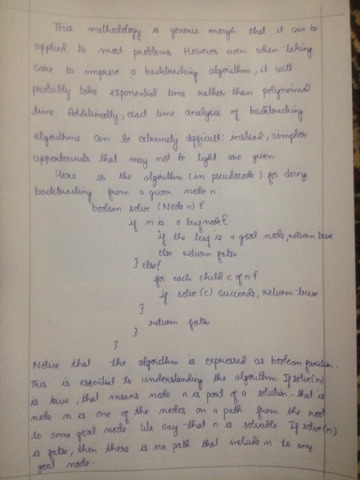 This methodology is generic enough that it can be
applied to most problems. However even when taking
care to improve a backtracking algorithm, it will
probably take exponential time rather than polynomial
time. Additionally, exact time analysis of backtracking
algorithms can be extremely difficult: instead, simpler
upperbounds that may not be tight are given.
Here is the algorithm (in pseudocode) for doing
backtracking from a given node n:
boolean solve (Node n) {
if n is a leafnode {
if the leaf is a goal node, return true
else return false
} else {
for each child c of n {
if solve (c) succeeds, return true
}
return false
}
}
Notice that the algorithm is expressed as boolean function.
This is essential to understanding the algorithm. If solve(n)
is true, that means node n is part of a solution - that is
node n is one of the nodes on a path from the root
to some goal node. We say that n is solvable. If solve(n)
is false, then there is no path that include n to any
goal node.